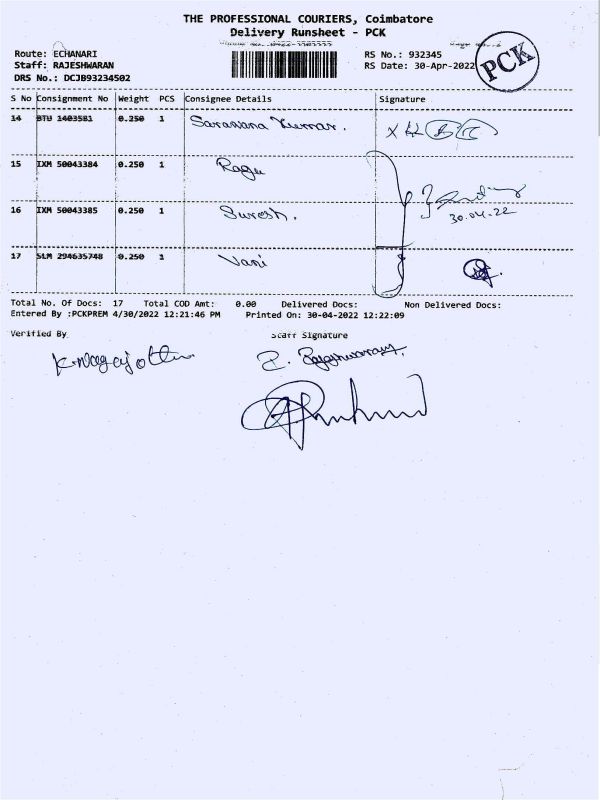 THE PROFESSIONAL COURIERS, Coimbatore
Delivery Runsheet - PCK
Route: ECHANARI
Staff: RAJESHWARAN
DRS No.: DCJB93234502
RS No.: 932345
RS Date: 30-Apr-2022
PCK
S No Consignment No Weight PCS Consignee Details Signature
14 BTU 1403581 0.250 1 Saravana Kumar.
15 IXM 50043384 0.250 1 Ragu
16 IXM 50043385 0.250 1 Suresh. 30.04.22
17 SLM 294635748 0.250 1 Vani
Total No. Of Docs: 17 Total COD Amt: 0.00 Delivered Docs: Non Delivered Docs:
Entered By :PCKPREM 4/30/2022 12:21:46 PM Printed On: 30-04-2022 12:22:09
Verified By Staff Signature